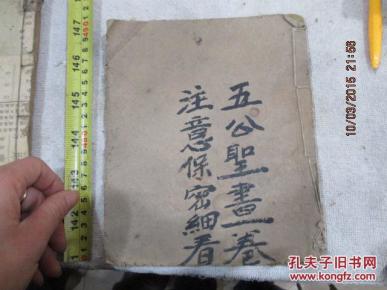 五公聖書一卷
注意保密細看
10/03/2015 21:56
孔夫子旧书网
142 143 144 145 146 147